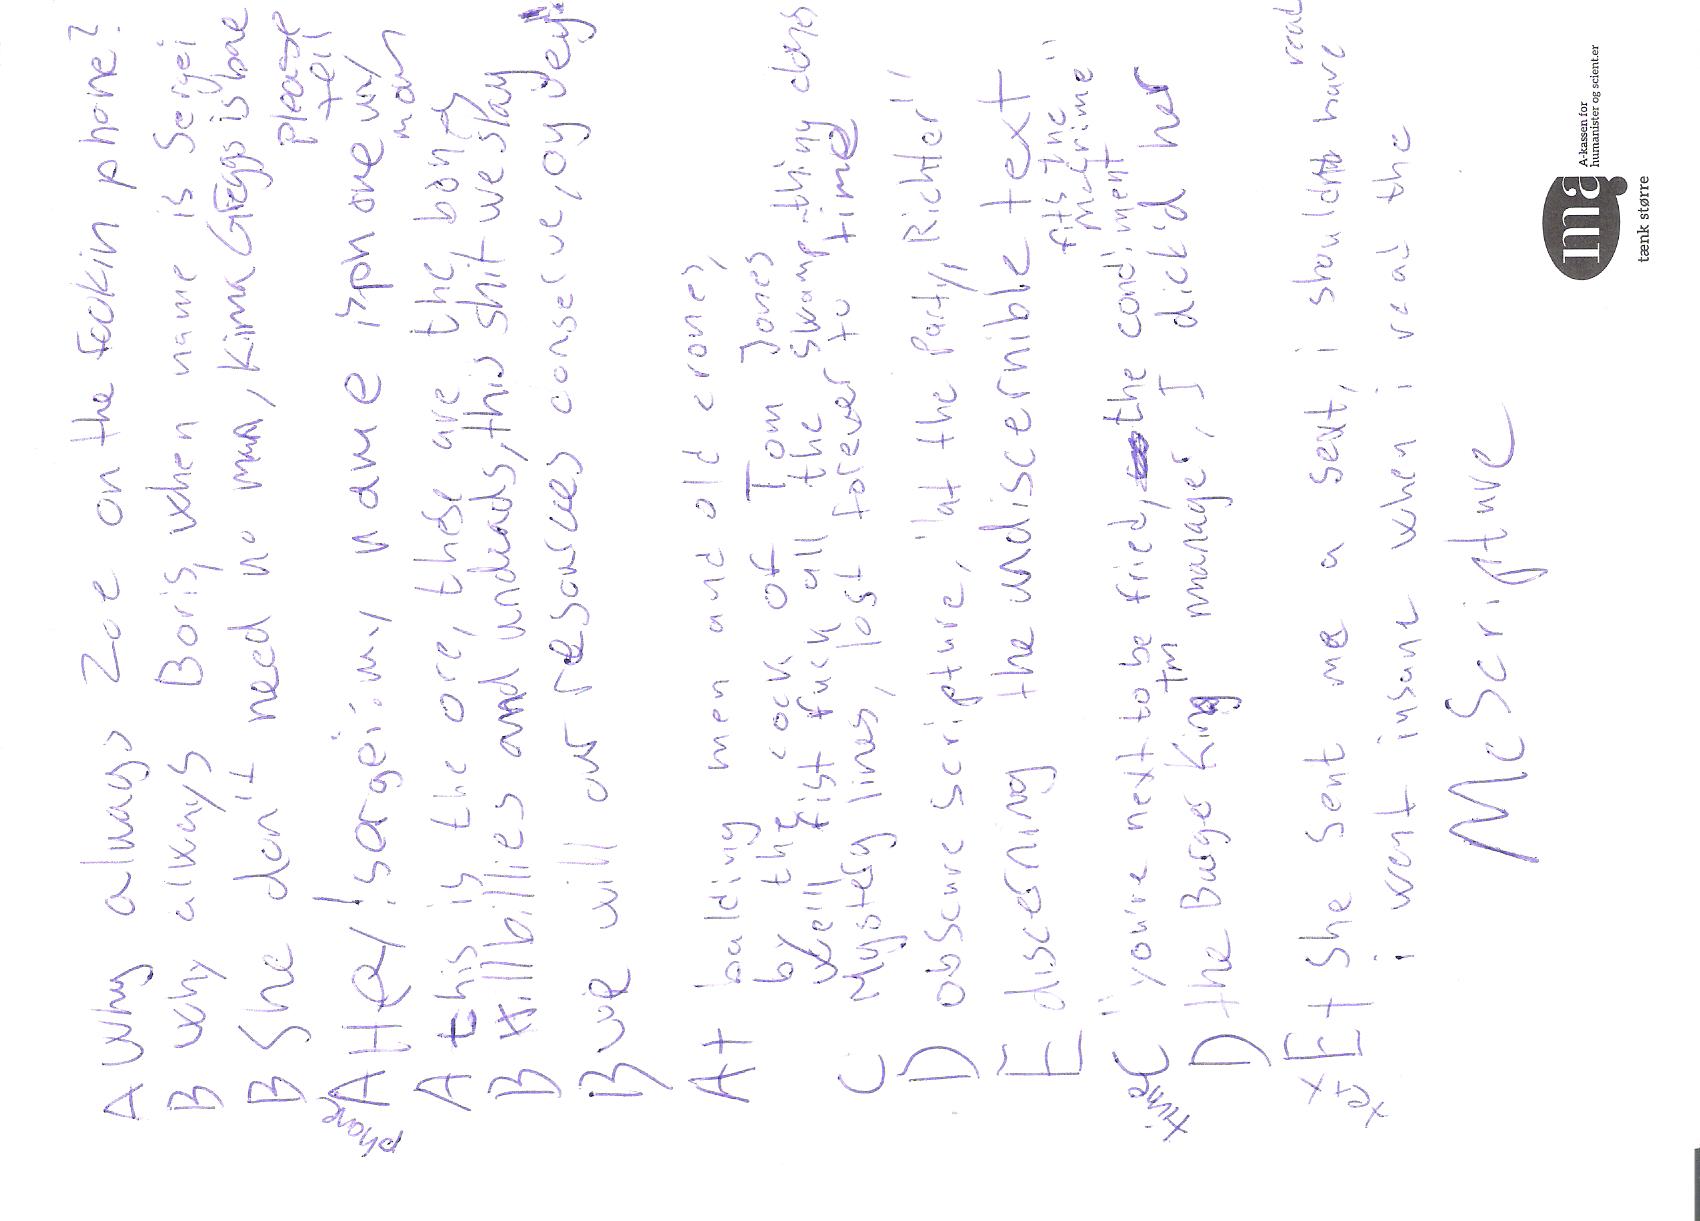 A Why always Zoe on the fookin phone?
B Why always Boris, when name is Sergei
B She don't need no man, Kima Greggs is bae
phone
please tell my mom
A Hey! sergei: my name is phone
A this is the ore, these are the bones
B Hillbillies and undeads, this shit we slay
B we will our resources conserve, oy vey!
A+ balding men and old crones,
by the cock of Tom Jones
we'll fist fuck all the swamp-thing clones
C Mystery lines, lost forever to time
D obscure scripture, "at the Party, Richter"
E discerning the undiscernible text
fits the McGrime"
time
C "you're next to be fried, the condiment
D the Burger King tm manager, I dick'd her
text
E+ She sent me a sext, i shouldn't have read
i went insane when i read the
McScripture
ma
A-kassen for
humanister og scient.er
tænk større